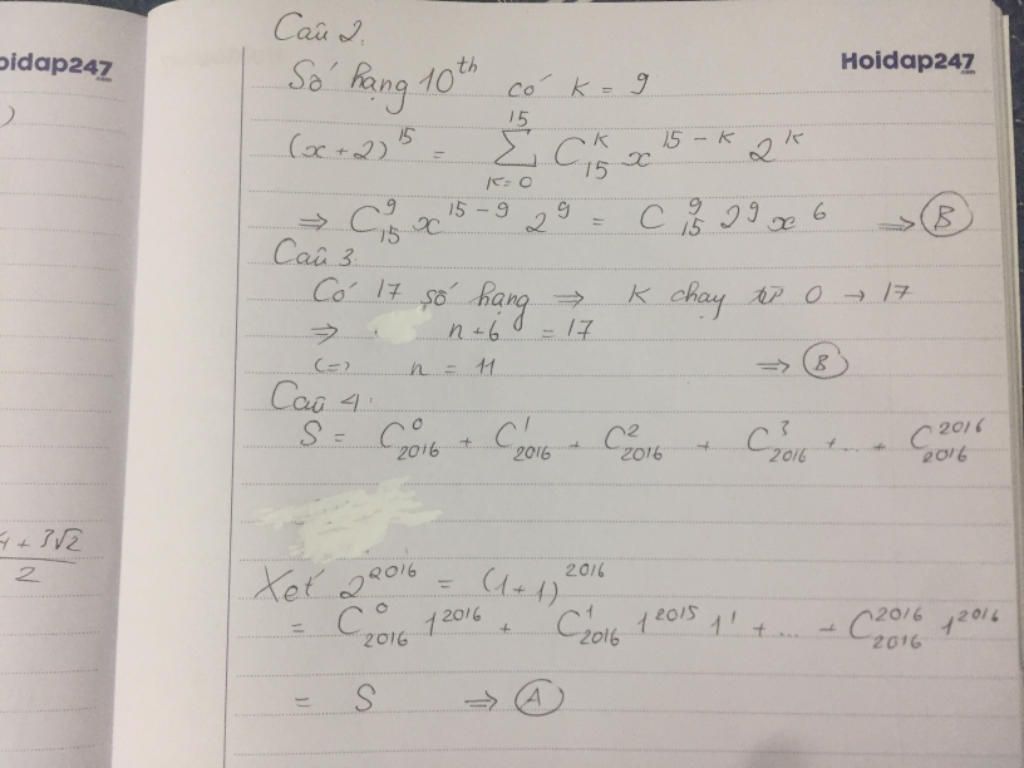 oidap247
.com
Hoidap247
.com
)
4 + 3√2
2
Câu 2.
Số hạng 10th có k = 9
(x + 2)^15 = Σ_{k=0}^{15} C_15^k x^{15-k} 2^k
⇒ C_15^9 x^{15-9} 2^9 = C_15^9 2^9 x^6 ⇒ B
Câu 3.
Có 17 số hạng ⇒ k chạy từ 0 → 17
⇒ n + 6 = 17
(=) n = 11 ⇒ B
Câu 4.
S = C_2016^0 + C_2016^1 + C_2016^2 + C_2016^3 + ... + C_2016^2016
Xét 2^2016 = (1 + 1)^2016
= C_2016^0 1^2016 + C_2016^1 1^2015 1^1 + ... + C_2016^2016 1^2016
= S ⇒ A